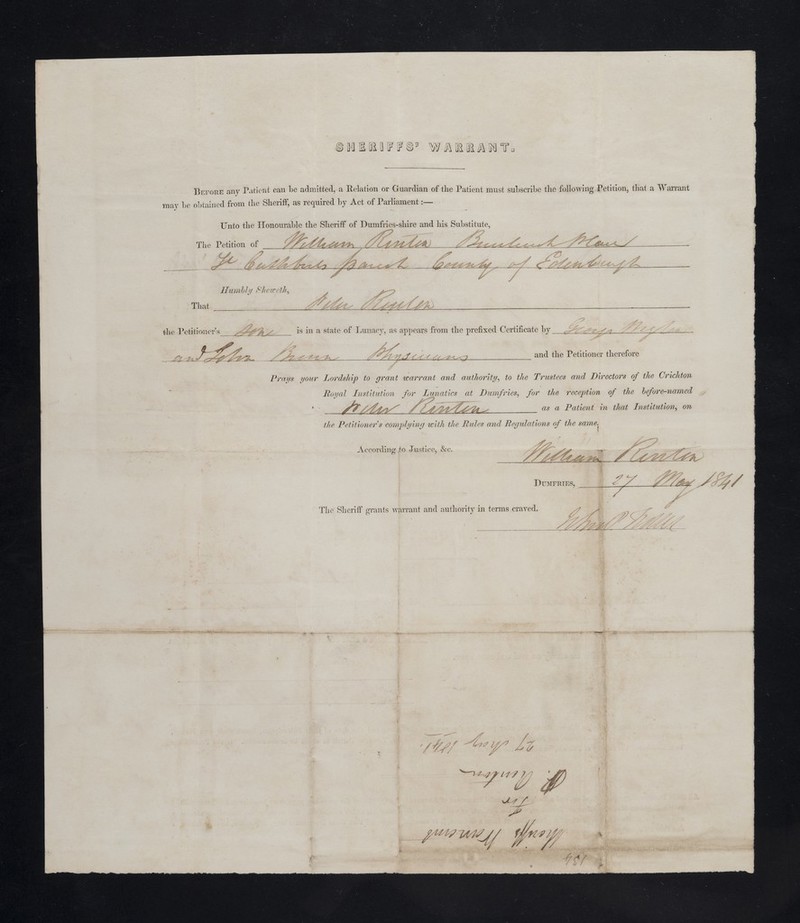 SHERIFFS' WARRANT.
BEFORE any Patient can be admitted, a Relation or Guardian of the Patient must subscribe the following Petition, that a Warrant
may be obtained from the Sheriff, as required by Act of Parliament:—
Unto the Honourable the Sheriff of Dumfries-shire and his Substitute,
The Petition of William Renton Buccleuch Place
St Cuthberts parish County of Edenburgh
Humbly Sheweth,
That Peter Renton
the Petitioner's Sone is in a state of Lunacy, as appears from the prefixed Certificate by George
and John Physicians and the Petitioner therefore
Prays your Lordship to grant warrant and authority, to the Trustees and Directors of the Crichton
Royal Institution for Lunatics at Dumfries, for the reception of the before-named
Peter Renton as a Patient in that Institution, on
the Petitioner's complying with the Rules and Regulations of the same,
According to Justice, &c. William Renton
DUMFRIES, 27 May 1841
The Sheriff grants warrant and authority in terms craved.
John
Sheriffs Warrant
for
P. Renton
27 May 1841.